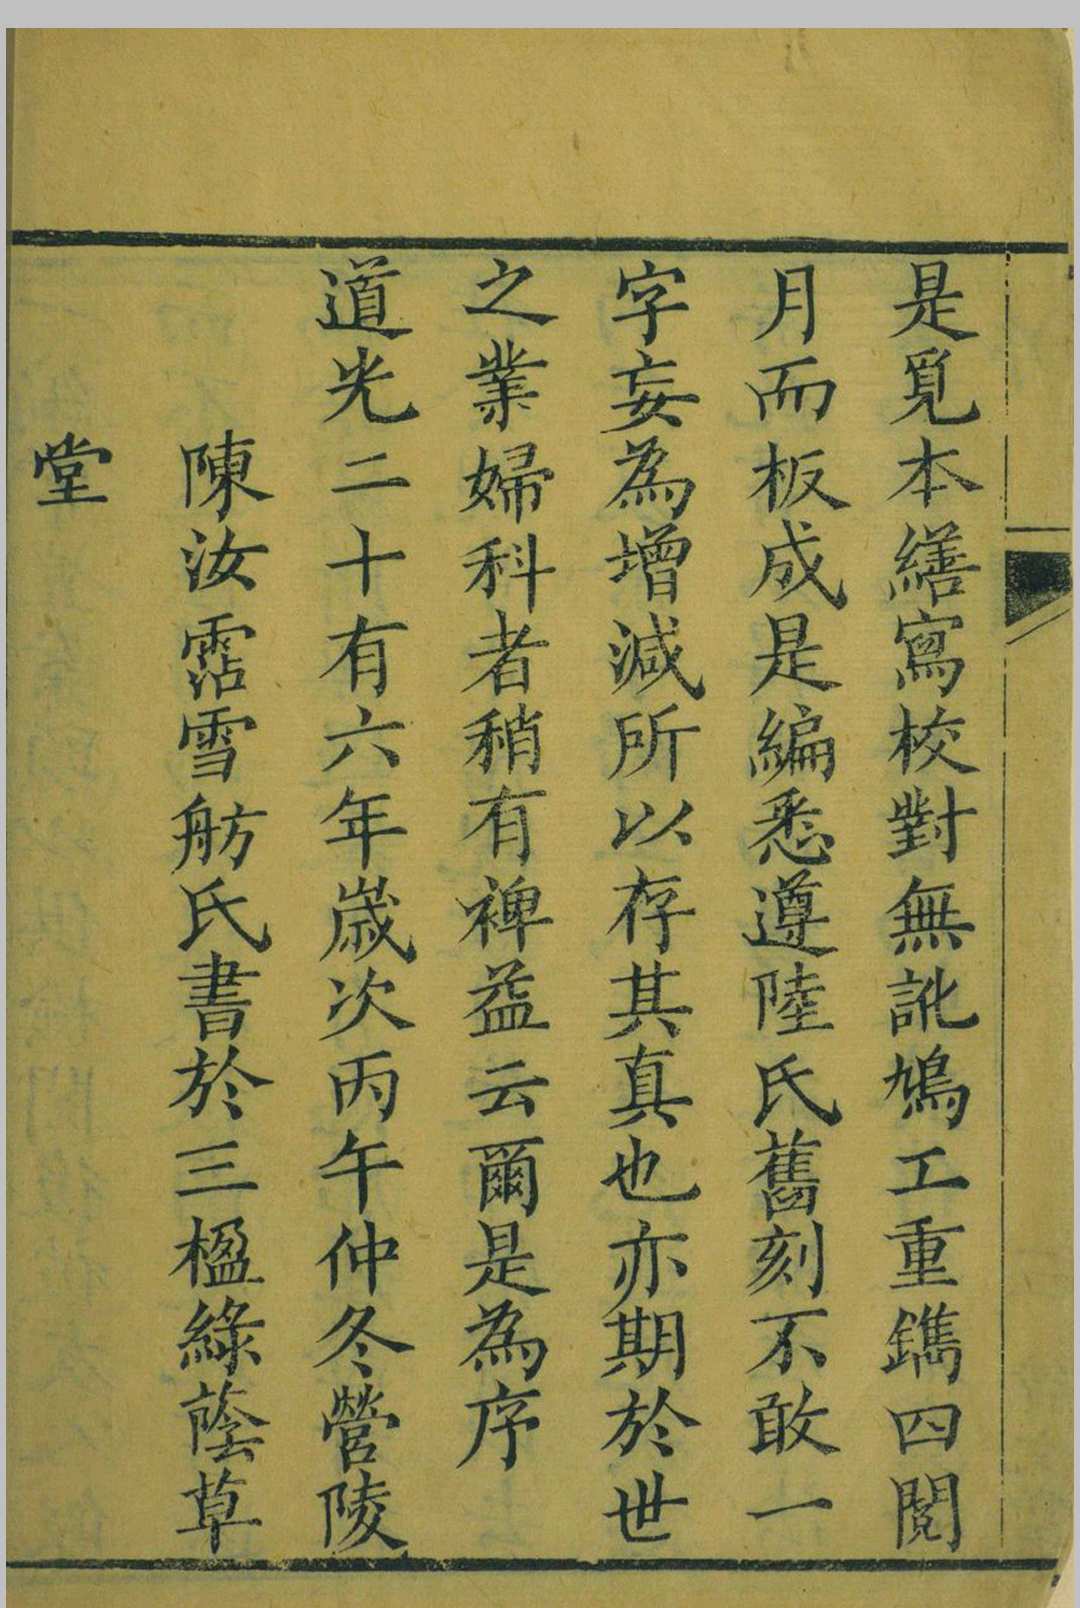 是覓本繕寫校對無訛鳩工重鐫四閱
月而板成是編悉遵陸氏舊刻不敢一
字妄為增減所以存其真也亦期於世
之業婦科者稍有裨益云爾是為序
道光二十有六年歲次丙午仲冬營陵
陳汝霑雪舫氏書於三楹綠蔭草
堂